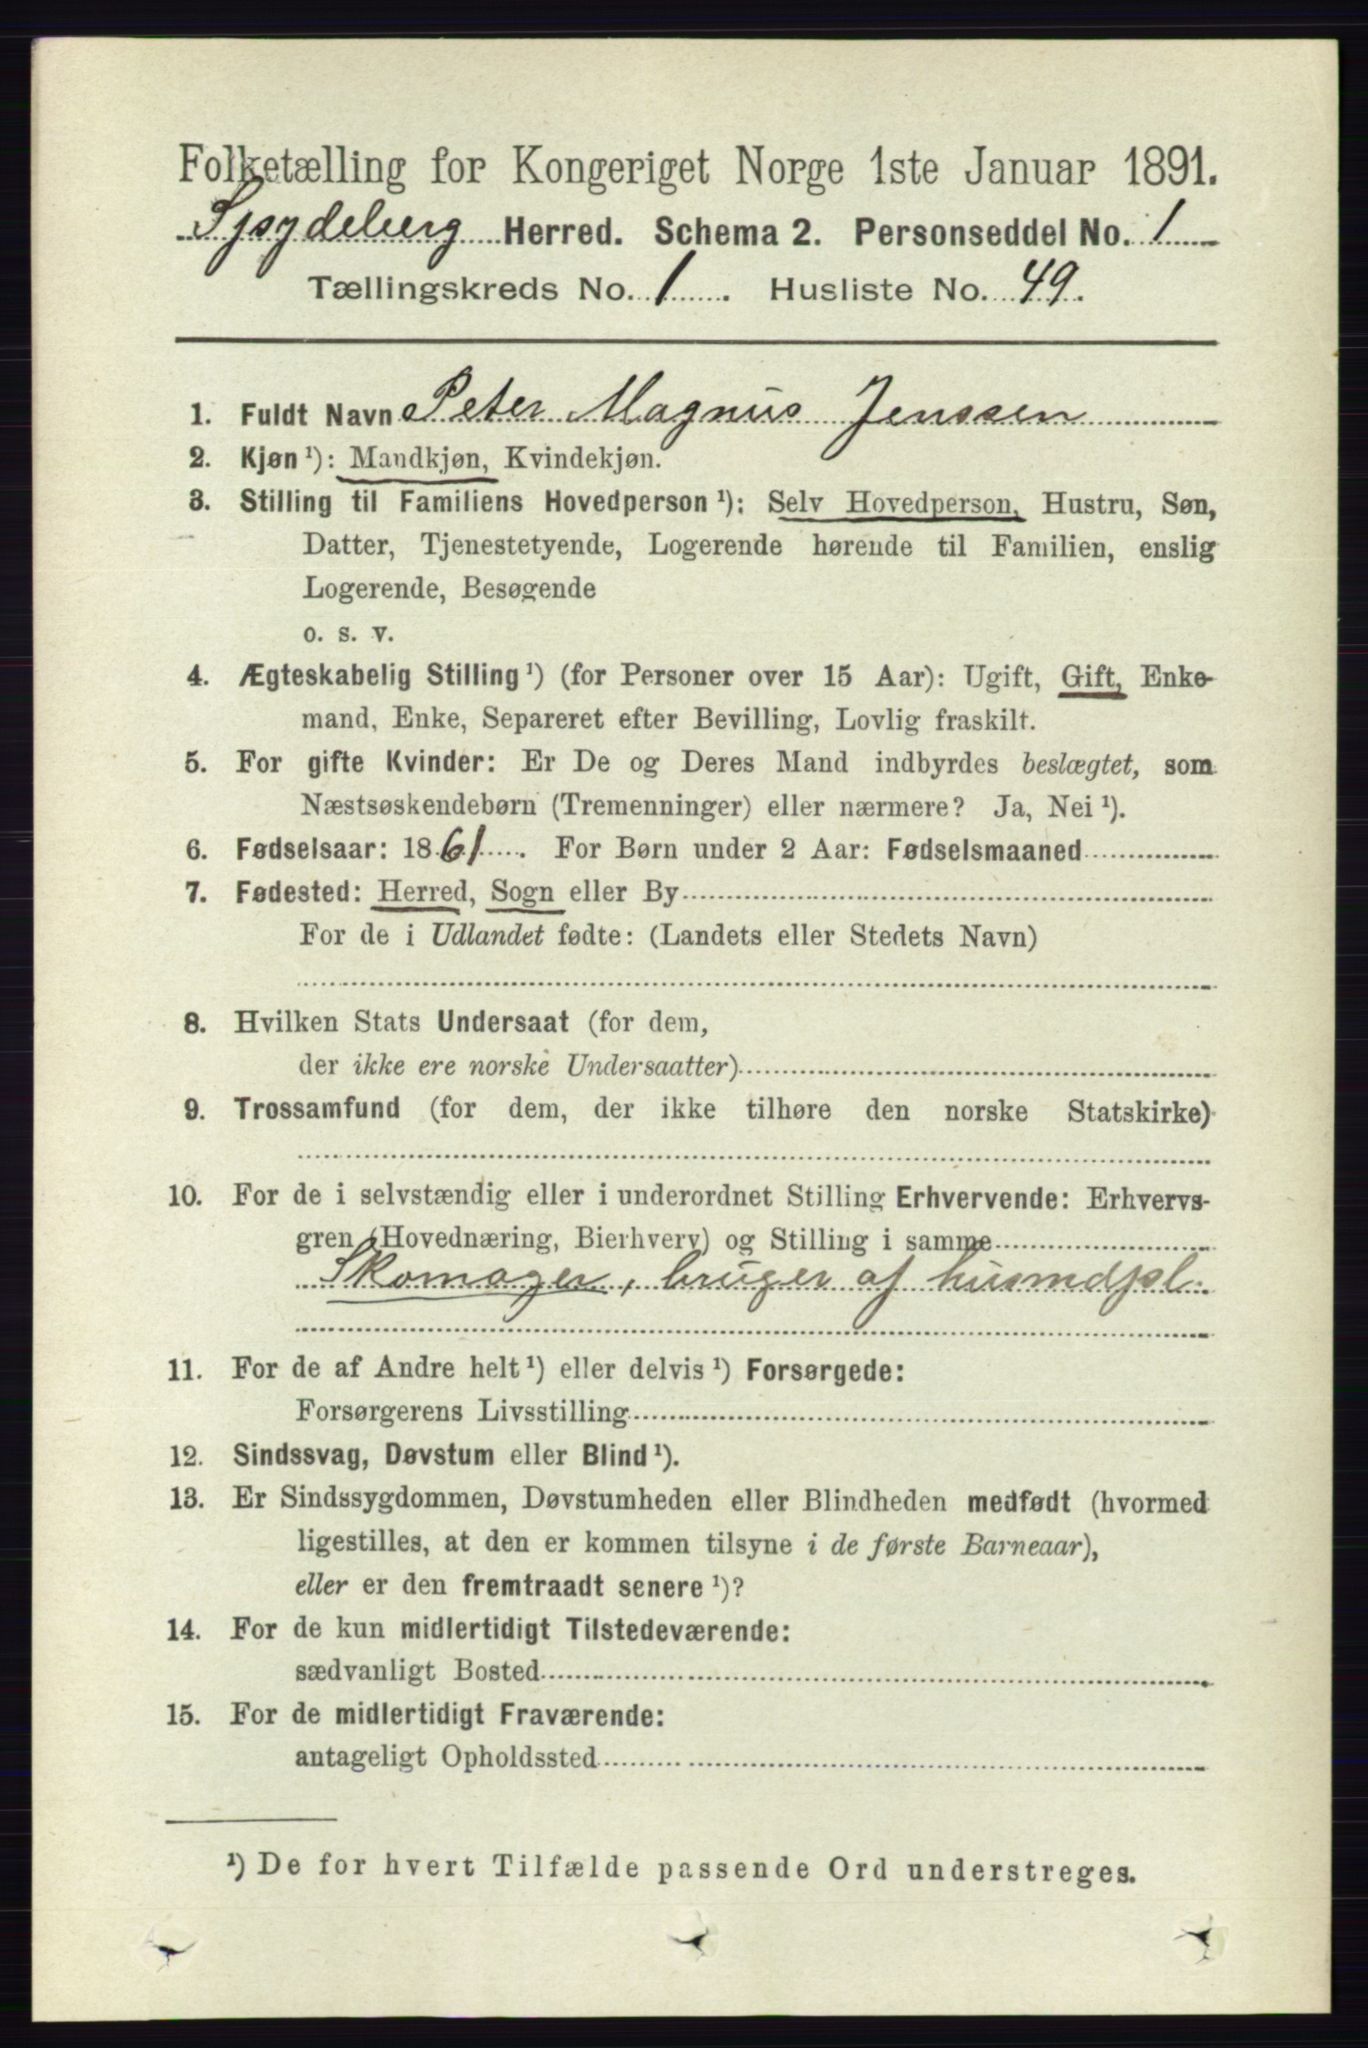 Folketælling for Kongeriget Norge 1ste Januar 1891.
Spydeberg Herred. Schema 2. Personseddel No. 1
Tællingskreds No. 1. Husliste No. 49.
1. Fuldt Navn Peter Magnus Jenssen
2. Kjøn ¹): Mandkjøn, Kvindekjøn.
3. Stilling til Familiens Hovedperson ¹): Selv Hovedperson, Hustru, Søn,
Datter, Tjenestetyende, Logerende hørende til Familien, enslig
Logerende, Besøgende
o. s. v.
4. Ægteskabelig Stilling ¹) (for Personer over 15 Aar): Ugift, Gift, Enke-
mand, Enke, Separeret efter Bevilling, Lovlig fraskilt.
5. For gifte Kvinder: Er De og Deres Mand indbyrdes beslægtet, som
Næstsøskendebørn (Tremenninger) eller nærmere? Ja, Nei ¹).
6. Fødselsaar: 1861. For Børn under 2 Aar: Fødselsmaaned
7. Fødested: Herred, Sogn eller By
For de i Udlandet fødte: (Landets eller Stedets Navn)
8. Hvilken Stats Undersaat (for dem,
der ikke ere norske Undersaatter)
9. Trossamfund (for dem, der ikke tilhøre den norske Statskirke)
10. For de i selvstændig eller i underordnet Stilling Erhvervende: Erhvervs-
gren (Hovednæring, Bierhverv) og Stilling i samme
Skomager, bruger af husmdpl.
11. For de af Andre helt ¹) eller delvis ¹) Forsørgede:
Forsørgerens Livsstilling
12. Sindssvag, Døvstum eller Blind ¹).
13. Er Sindssygdommen, Døvstumheden eller Blindheden medfødt (hvormed
ligestilles, at den er kommen tilsyne i de første Barneaar),
eller er den fremtraadt senere ¹)?
14. For de kun midlertidigt Tilstedeværende:
sædvanligt Bosted
15. For de midlertidigt Fraværende:
antageligt Opholdssted
¹) De for hvert Tilfælde passende Ord understreges.